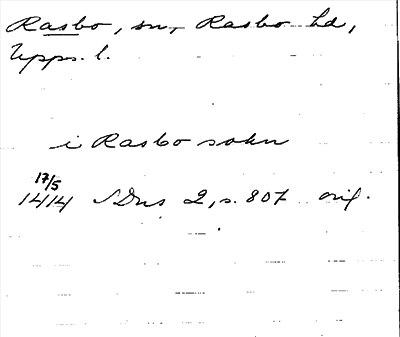 Rasbo, sn, Rasbo hd,
Upps. l.
i Rasbo sokn
17/5
1414 SDns 2, s. 807 orig.